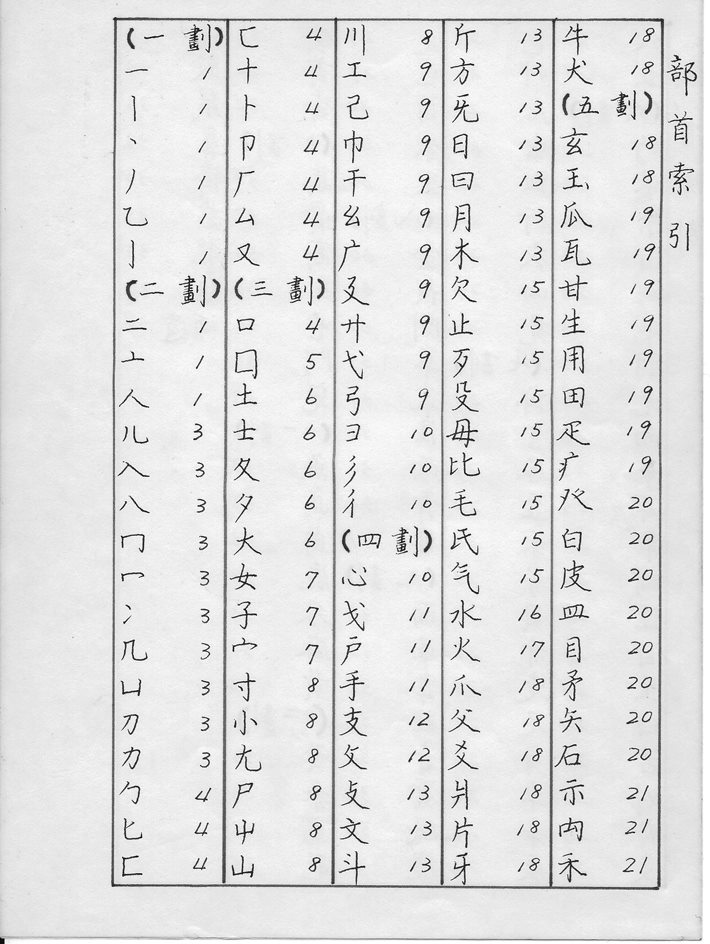 部首索引
(一 劃)
一 1
丨 1
丶 1
丿 1
乙 1
亅 1
(二 劃)
二 1
亠 1
人 1
儿 3
入 3
八 3
冂 3
冖 3
冫 3
几 3
凵 3
刀 3
力 3
勹 4
匕 4
匚 4
匸 4
十 4
卜 4
卩 4
厂 4
厶 4
又 4
(三 劃)
口 4
囗 5
土 6
士 6
夂 6
夕 6
大 6
女 7
子 7
宀 7
寸 8
小 8
尢 8
尸 8
屮 8
山 8
川 8
工 9
己 9
巾 9
干 9
幺 9
广 9
廴 9
廾 9
弋 9
弓 9
彐 10
彡 10
彳 10
(四 劃)
心 10
戈 11
戶 11
手 11
支 12
攵 12
攴 13
文 13
斗 13
斤 13
方 13
旡 13
日 13
曰 13
月 13
木 13
欠 15
止 15
歹 15
殳 15
毋 15
比 15
毛 15
氏 15
气 15
水 16
火 17
爪 18
父 18
爻 18
爿 18
片 18
牙 18
牛 18
犬 18
(五 劃)
玄 18
玉 18
瓜 19
瓦 19
甘 19
生 19
用 19
田 19
疋 19
疒 19
癶 20
白 20
皮 20
皿 20
目 20
矛 20
矢 20
石 20
示 21
禸 21
禾 21